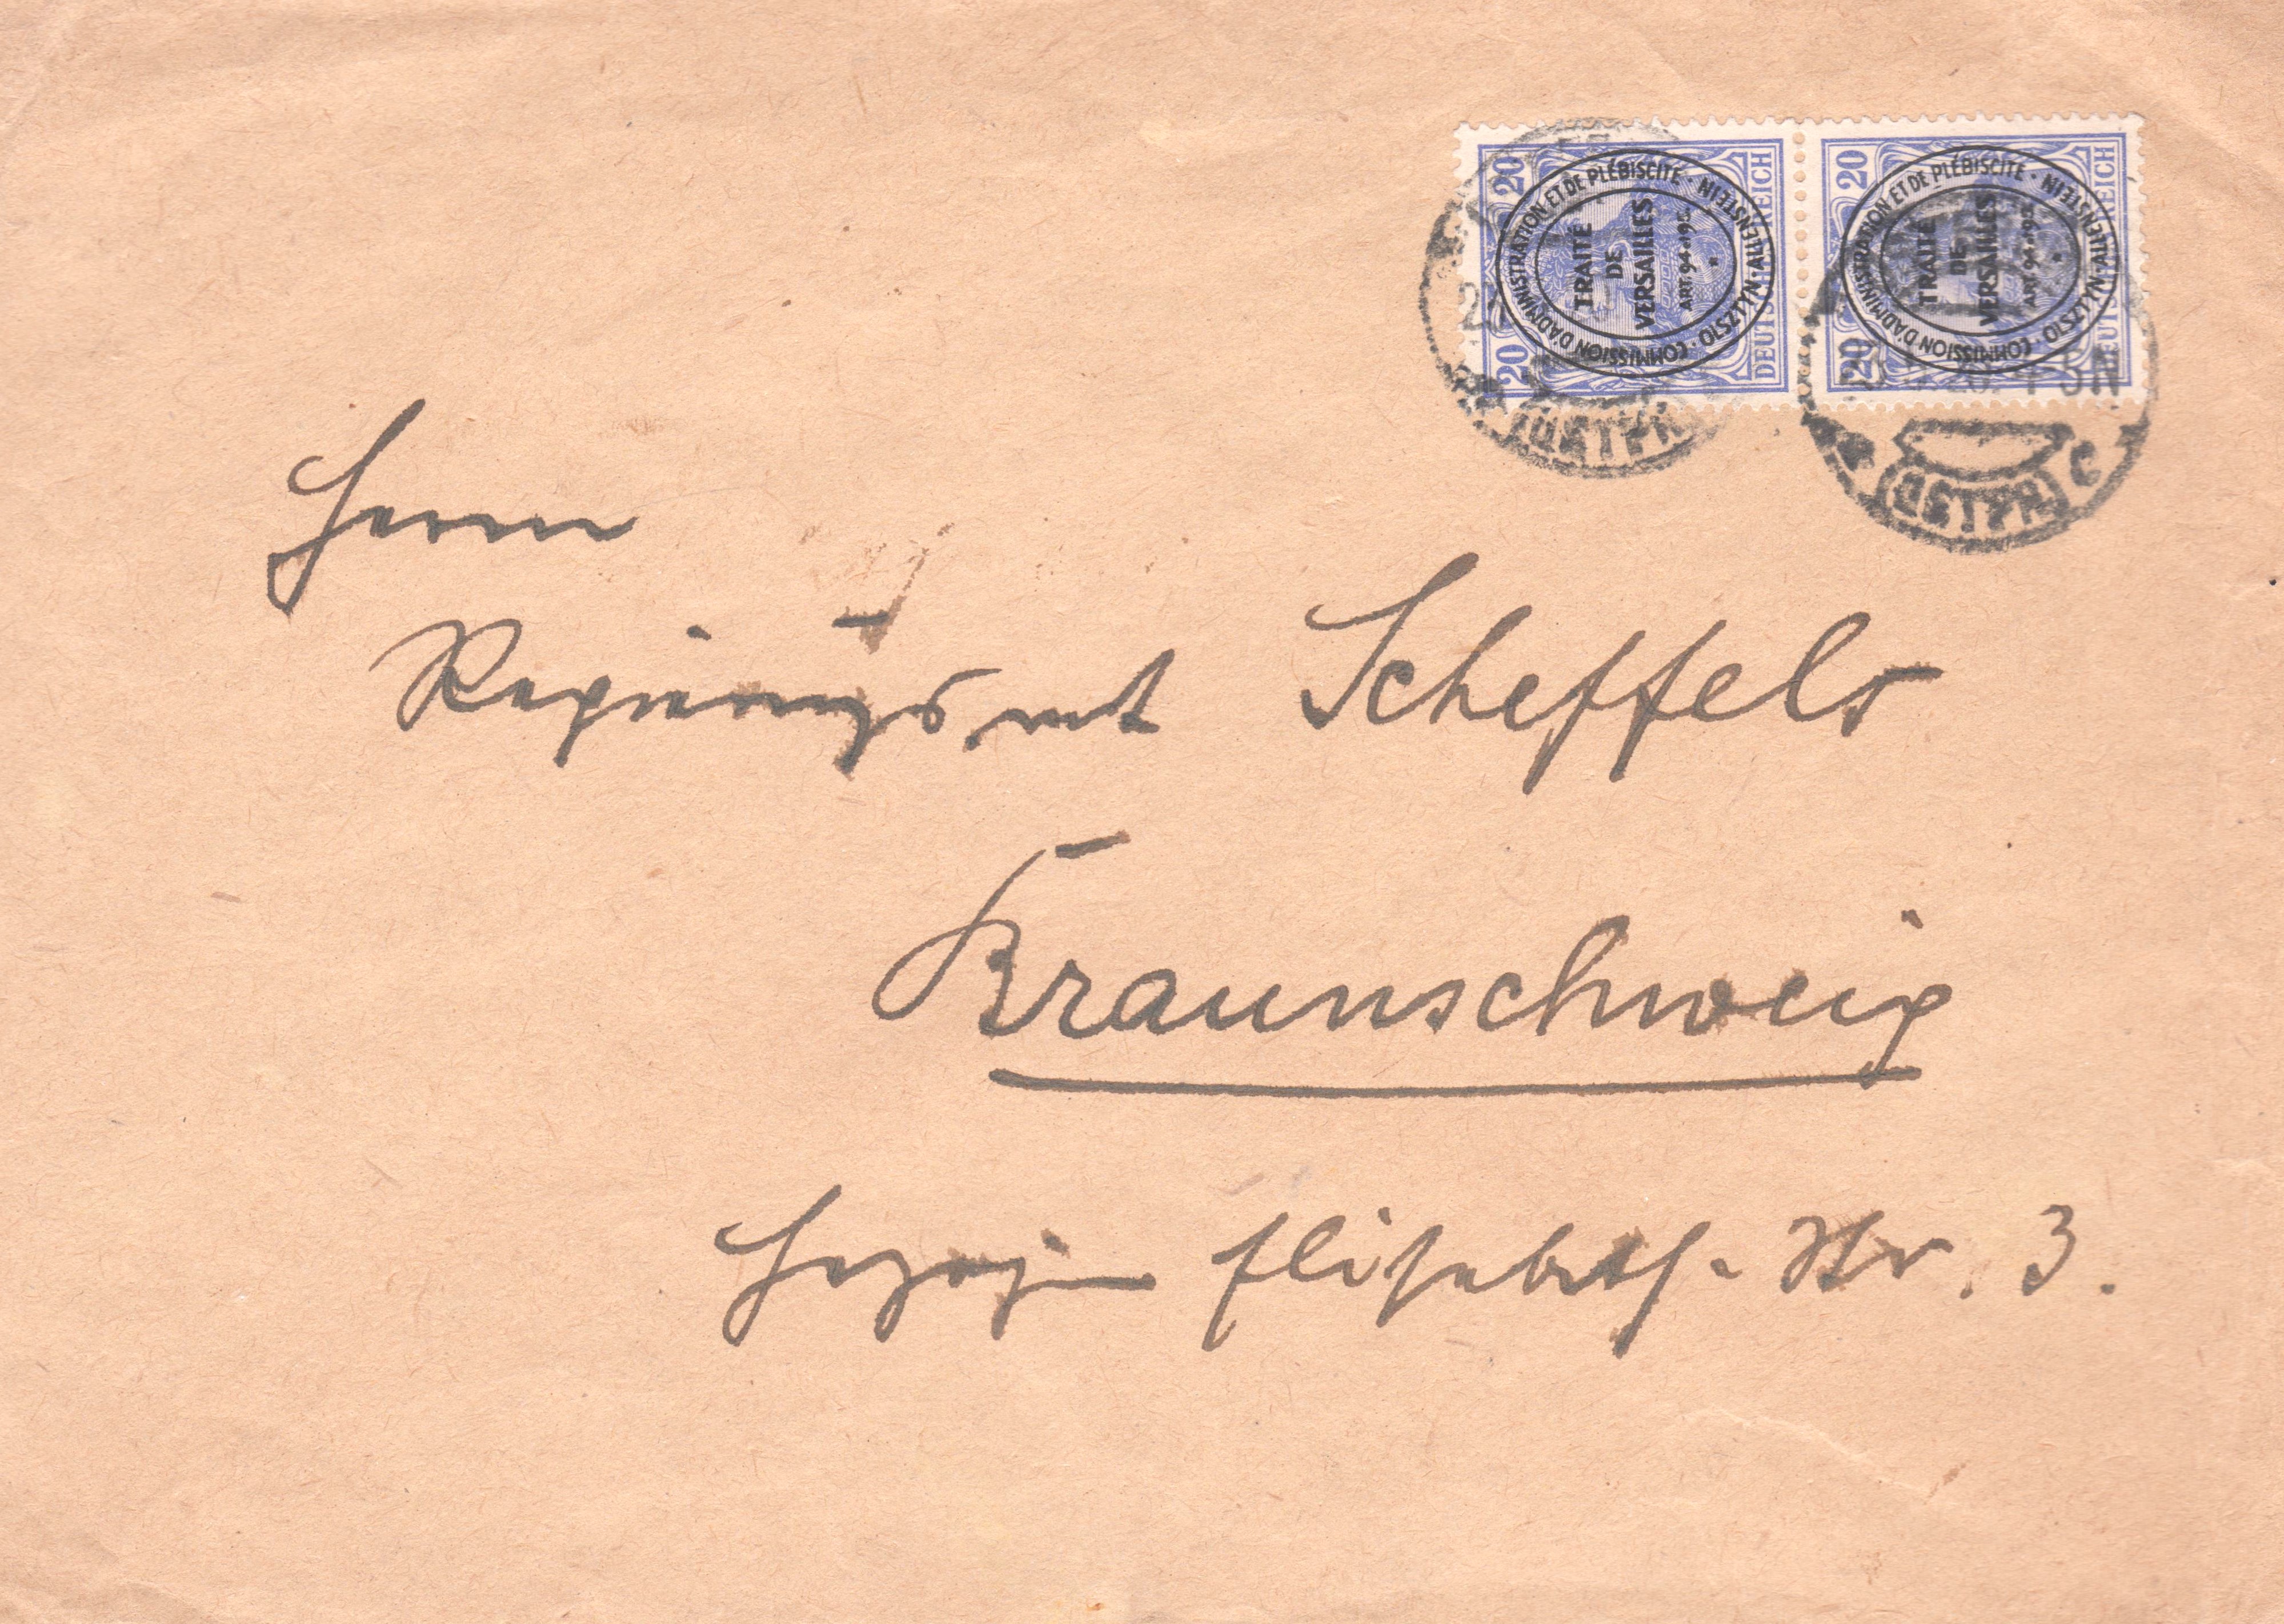 20 20
DEUTSCHES REICH
COMMISSION D'ADMINISTRATION ET DE PLÉBISCITE · OLSZTYN · ALLENSTEIN
TRAITÉ
DE
VERSAILLES
ART. 94 et 95.
20 20
DEUTSCHES REICH
COMMISSION D'ADMINISTRATION ET DE PLÉBISCITE · OLSZTYN · ALLENSTEIN
TRAITÉ
DE
VERSAILLES
ART. 94 et 95.
(OSTPR)
(OSTPR) c
Herrn
Regierungsrat Scheffels
Braunschweig
Herzogin Elisabeth-Str. 3.